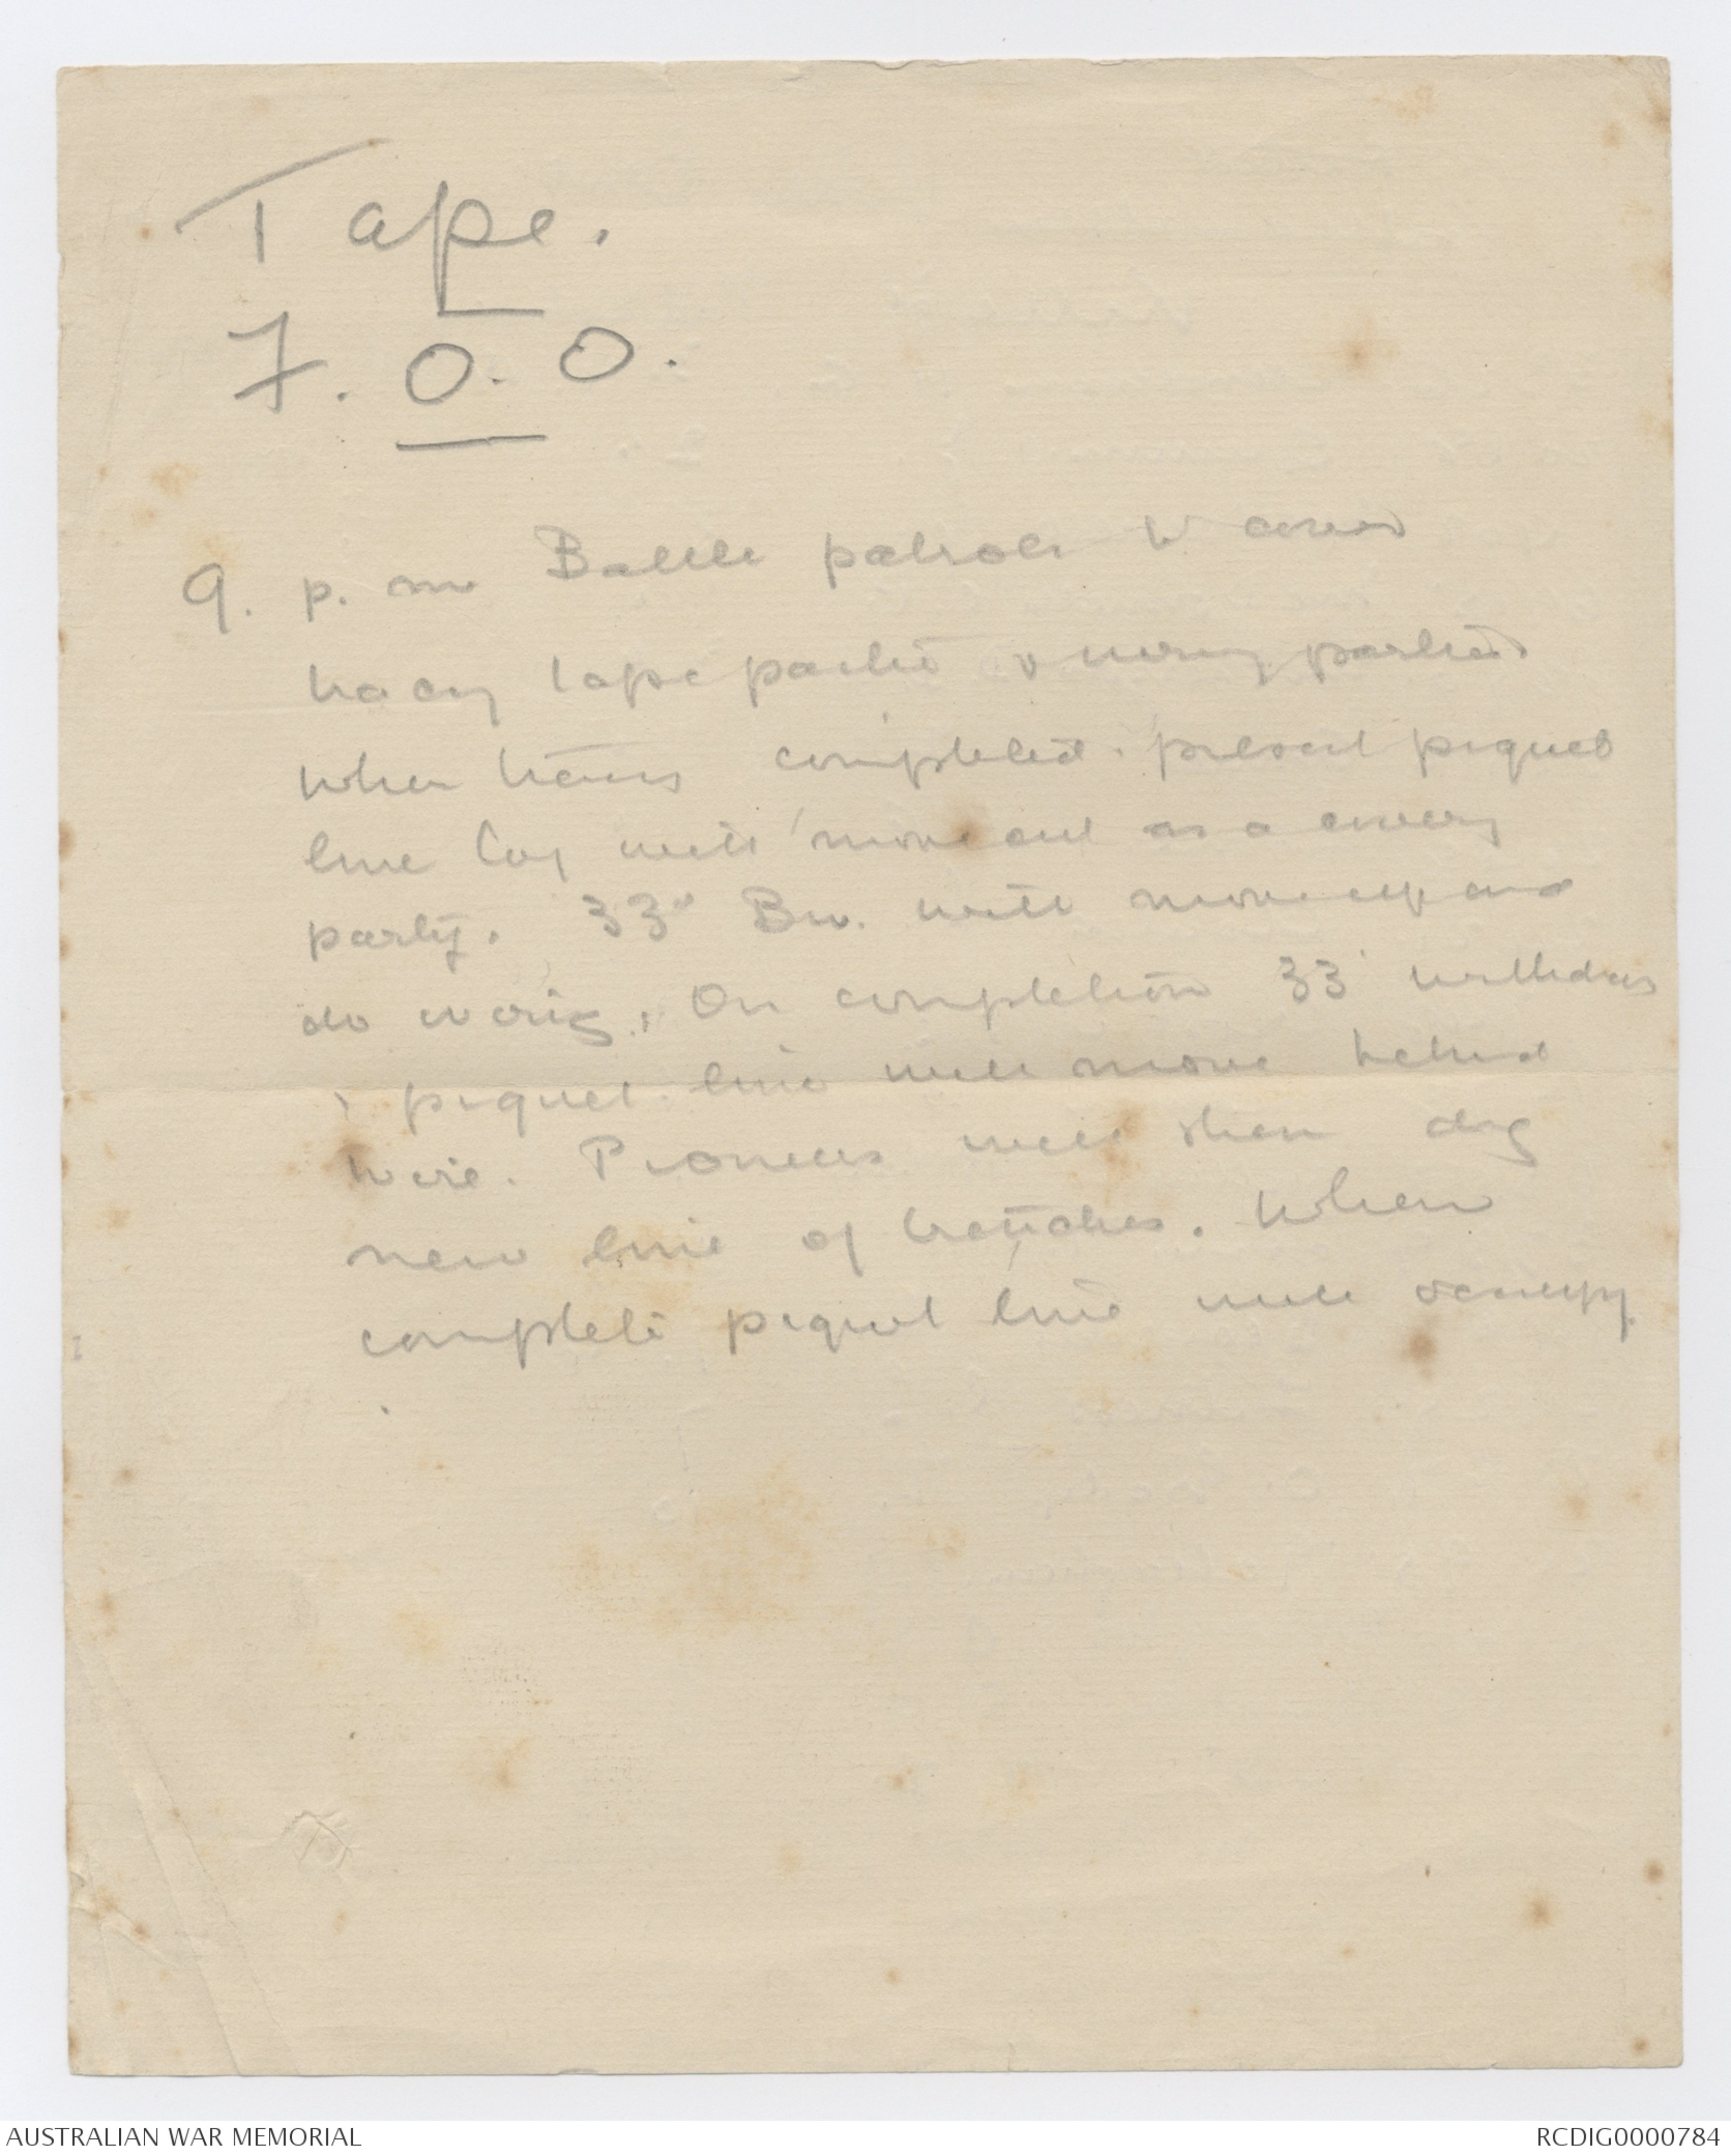 Tape.
7. 0. 0.
9. p.m Battle patrols to cover
tracing tape parties & wiring parties
when tracing completed. present piquet
line Coy will move out as a covering
party. 33rd Bn. will move up and
do wiring. On completion 33rd withdraws
& piquet line will move behind
wire. Pioneers will then dig
new line of trenches. When
complete piquet line will occupy
AUSTRALIAN WAR MEMORIAL
RCDIG0000784